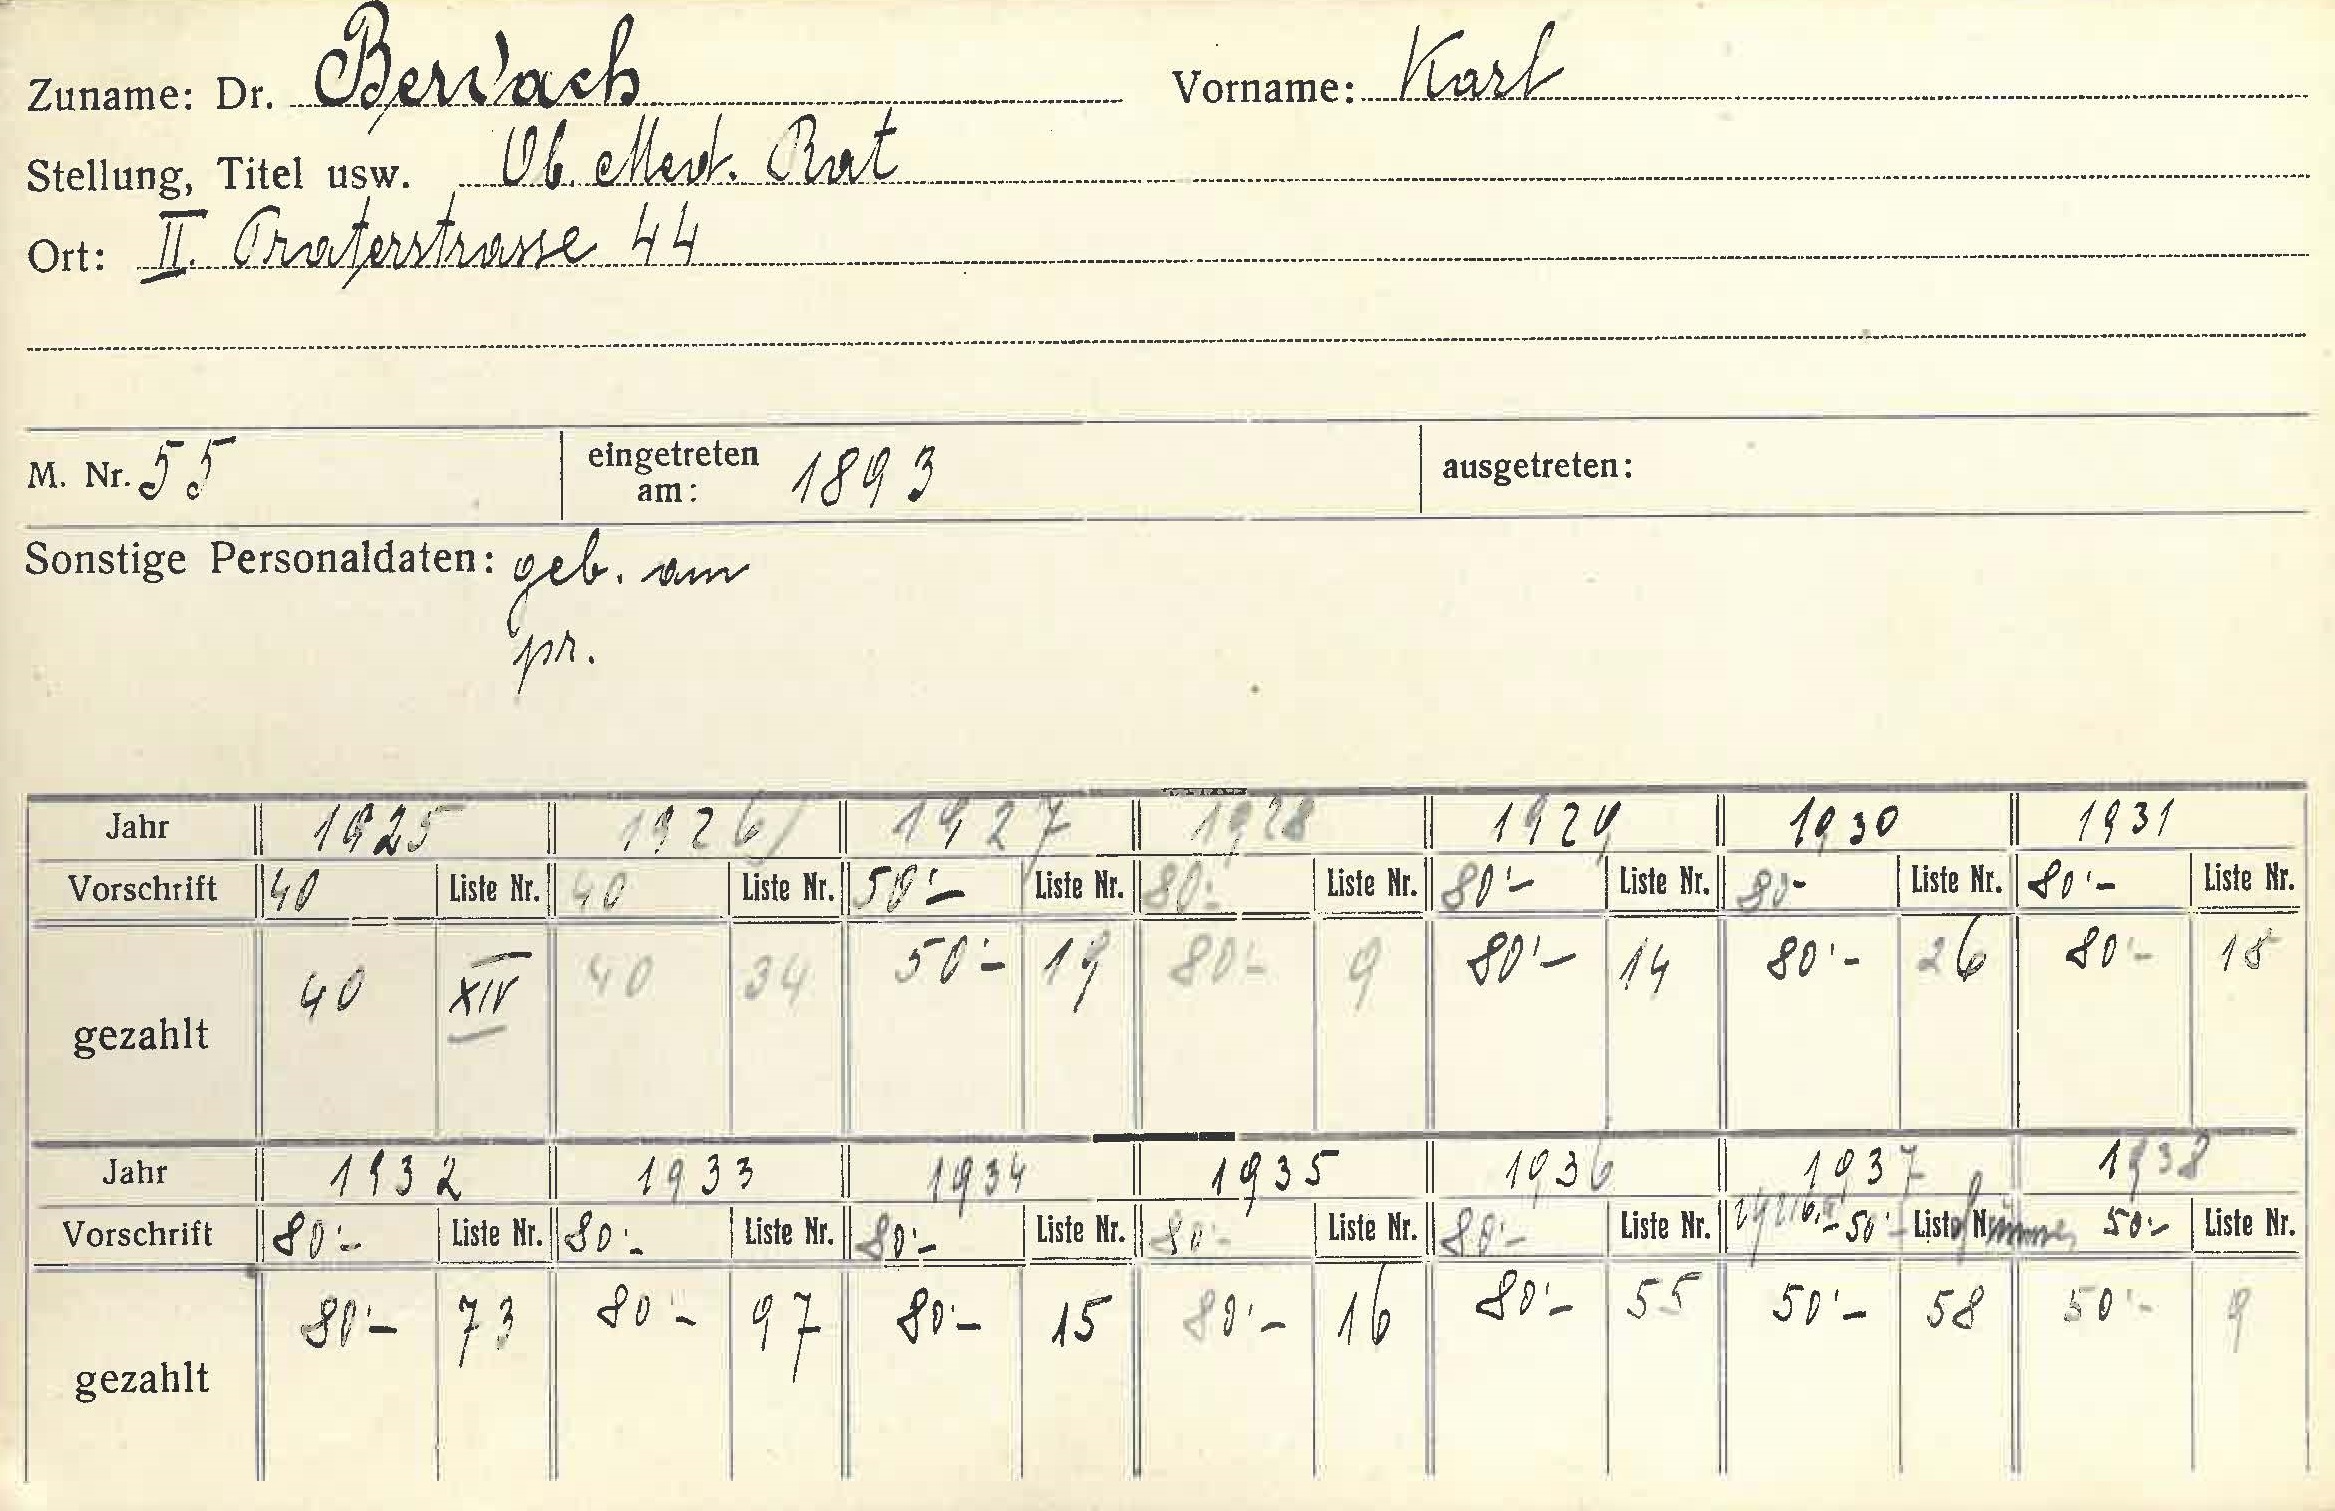 Zuname: Dr. Bervach Vorname: Karl
Stellung, Titel usw. Ob. Med. Rat
Ort: II. Praterstrasse 44
M. Nr. 55 eingetreten am: 1893 ausgetreten:
Sonstige Personaldaten: geb. am
pr.
Jahr 1925 1926 1927 1928 1929 1930 1931
Vorschrift 40 Liste Nr. 40 Liste Nr. 50'- Liste Nr. 80'- Liste Nr. 80'- Liste Nr. 80- Liste Nr. 80'- Liste Nr.
gezahlt 40 XIV 40 34 50'- 19 80'- 9 80'- 14 80'- 26 80'- 18
Jahr 1932 1933 1934 1935 1936 1937 1938
Vorschrift 80'- Liste Nr. 80'- Liste Nr. 80'- Liste Nr. 80'- Liste Nr. 80'- Liste Nr. 50'- Liste 50'- Liste Nr.
gezahlt 80'- 73 80'- 97 80'- 15 80'- 16 80'- 55 50'- 58 50'- 9